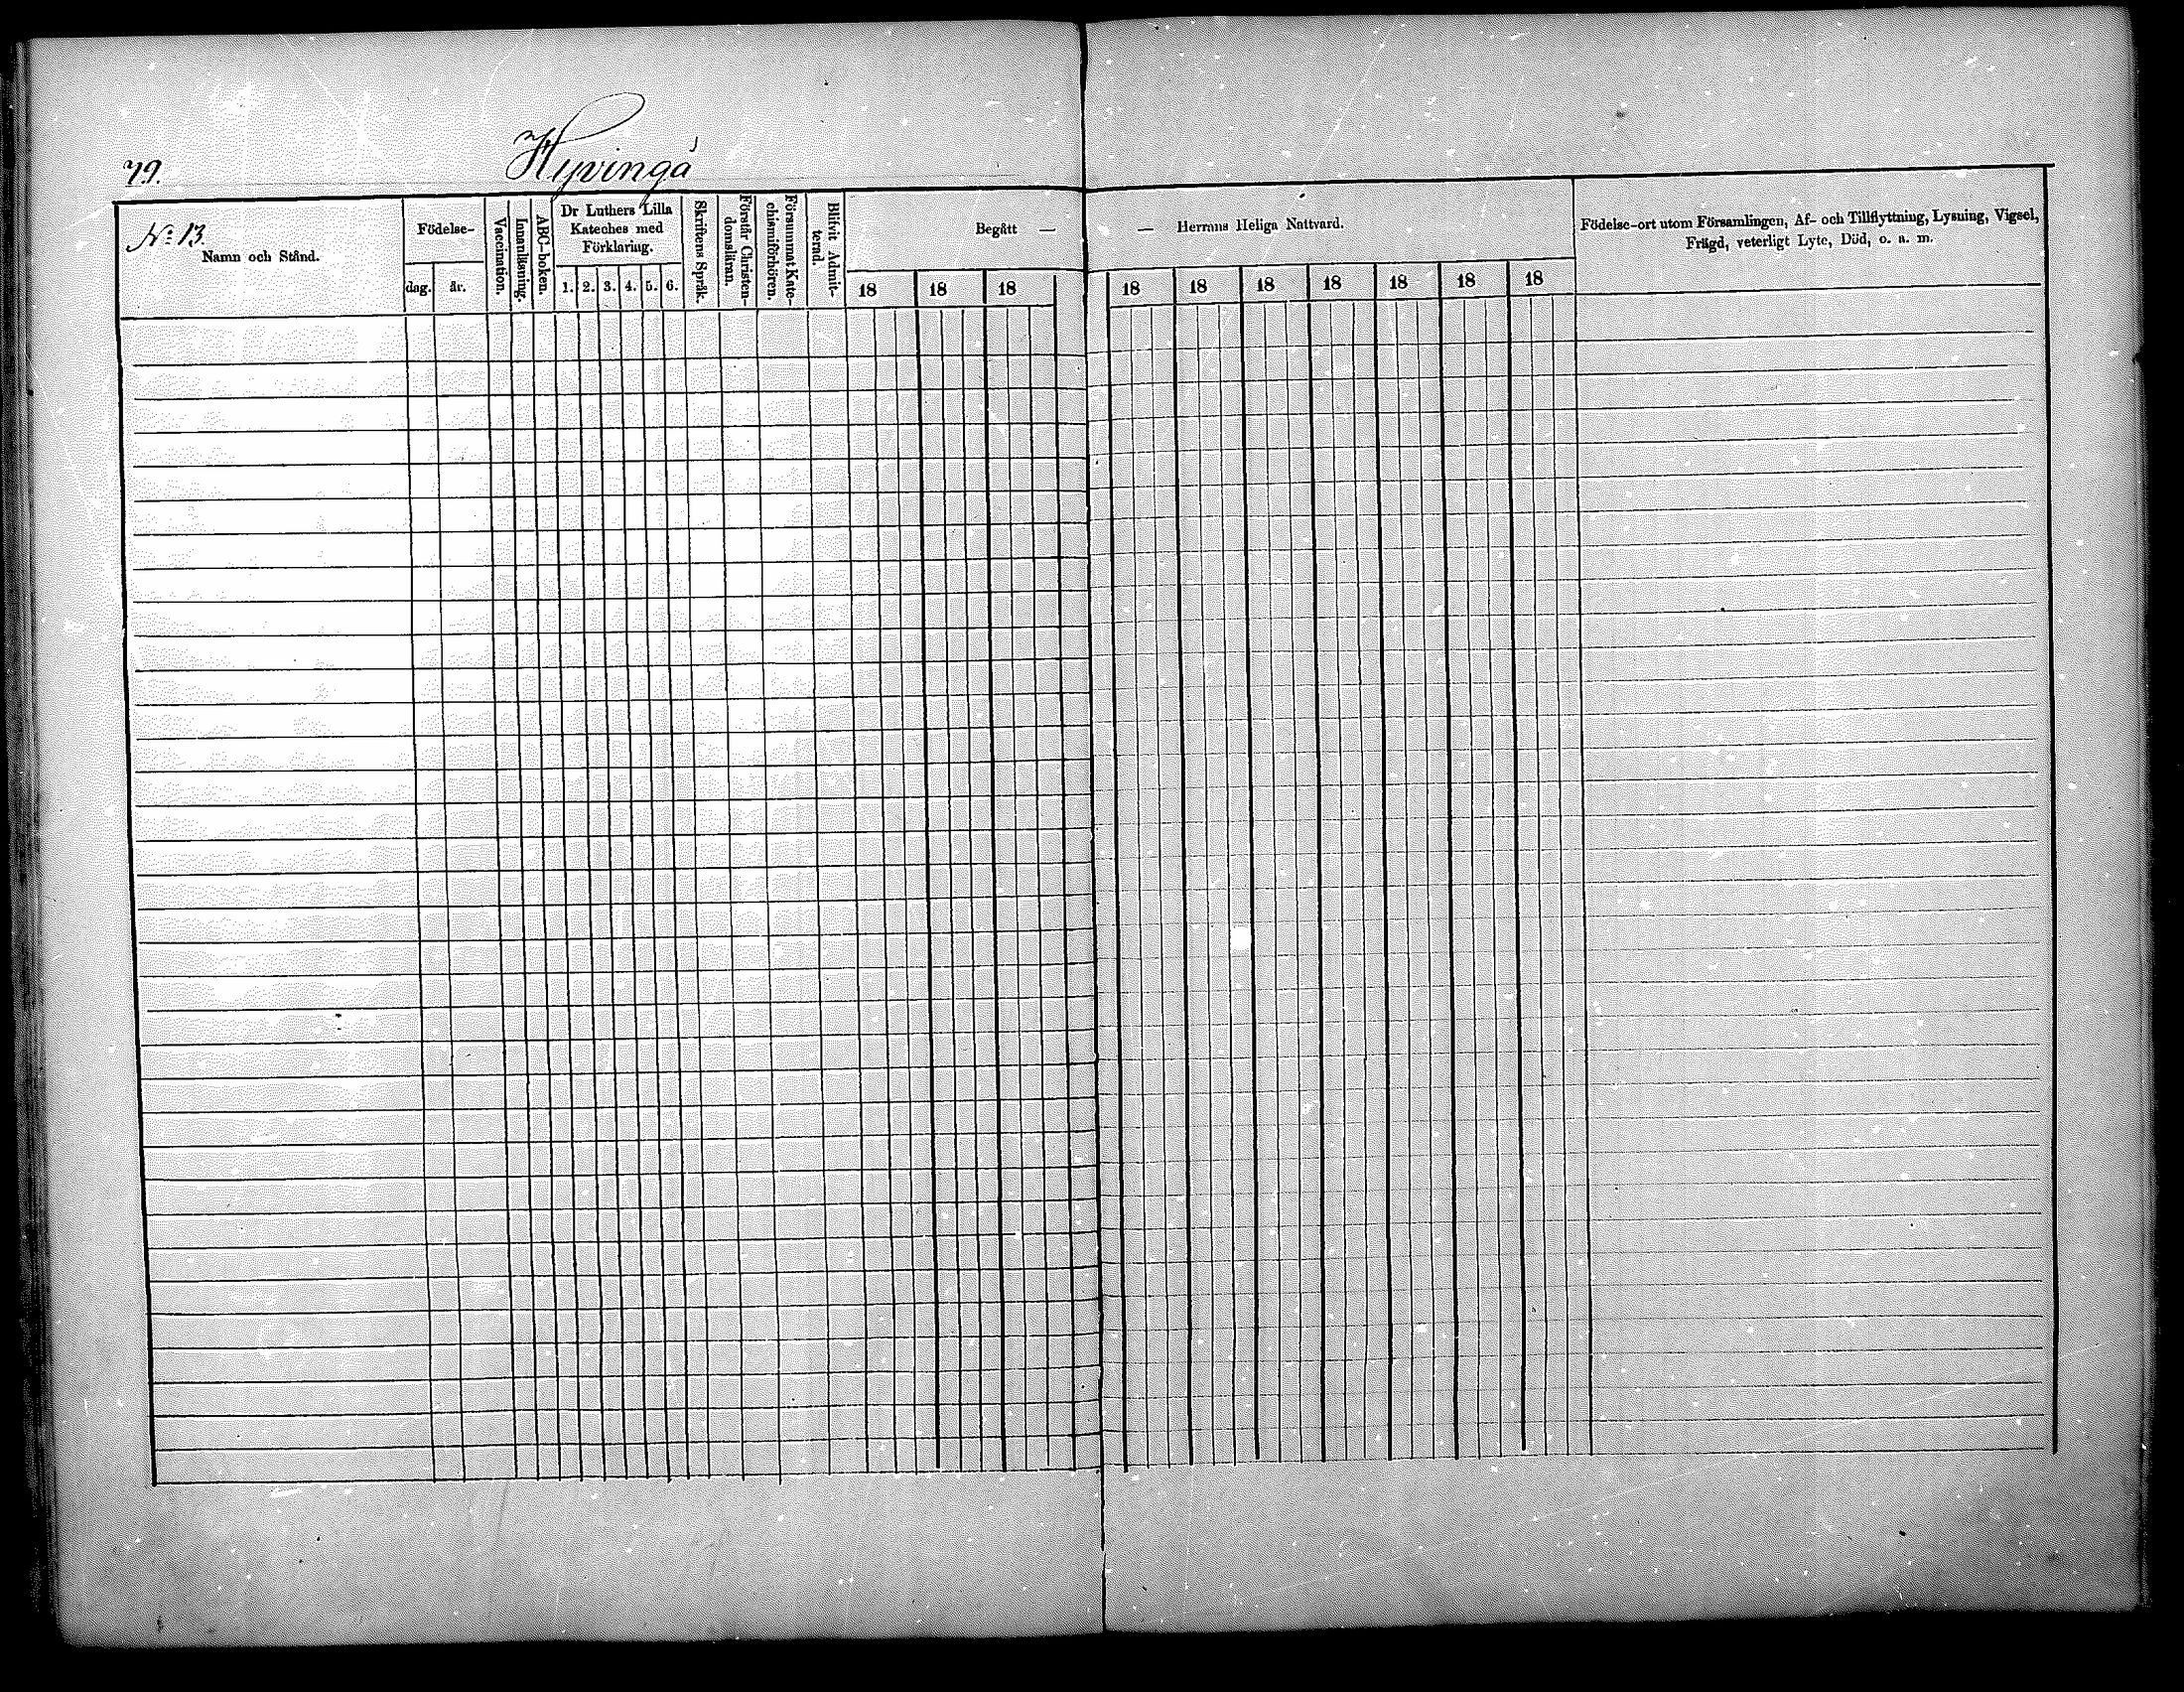 79.
Hyvingå
N: 13.
Namn och Stånd.
Födelse-
dag.
år.
Vaccination.
Innanläsning.
ABC-boken.
Dr Luthers Lilla
Kateches med
Förklaring.
1. 2. 3. 4. 5. 6.
Skriftens Språk.
Förstår Christen-
domsläran.
Försummat Kate-
chismiförhören.
Blifvit Admit-
terad.
Begått —
18 18 18
— Herrans Heliga Nattvard.
18 18 18 18 18 18 18
Födelse-ort utom Församlingen, Af- och Tillflyttning, Lysning, Vigsel,
Frägd, veterligt Lyte, Död, o. a. m.